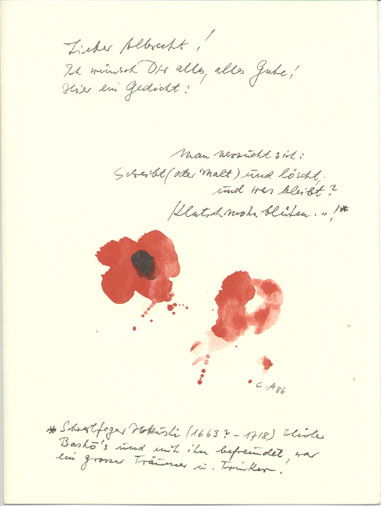 Lieber Albrecht!
Ich wünsch Dir alles, alles Gute!
Hier ein Gedicht:
Man versucht sich:
Schreibt (oder malt) und löscht,
und was bleibt?
Klatschmohnblüten...!*
C.A 86
* Hokushi (1663? - 1718)
Bashō's und mit ihm befreundet, war
ein grosser Träumer u. Trinker!